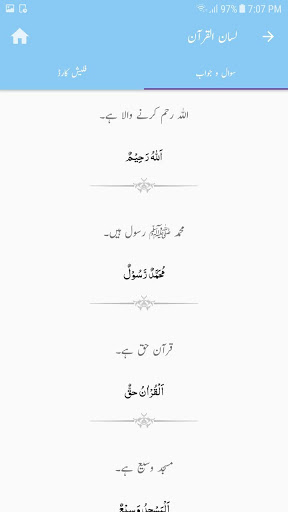 7:07 PM
لسان القرآن
سوال و جواب
فلیش کارڈز
اللہ رحم کرنے والا ہے۔
اَللّٰهُ رَحِيْمٌ
محمد ﷺ رسول ہیں۔
مُحَمَّدٌ رَّسُوْلٌ
قرآن حق ہے۔
اَلْقُرْاٰنُ حَقٌّ
مسجد وسیع ہے۔
اَلْمَسْجِدُ وَسِيْعٌ